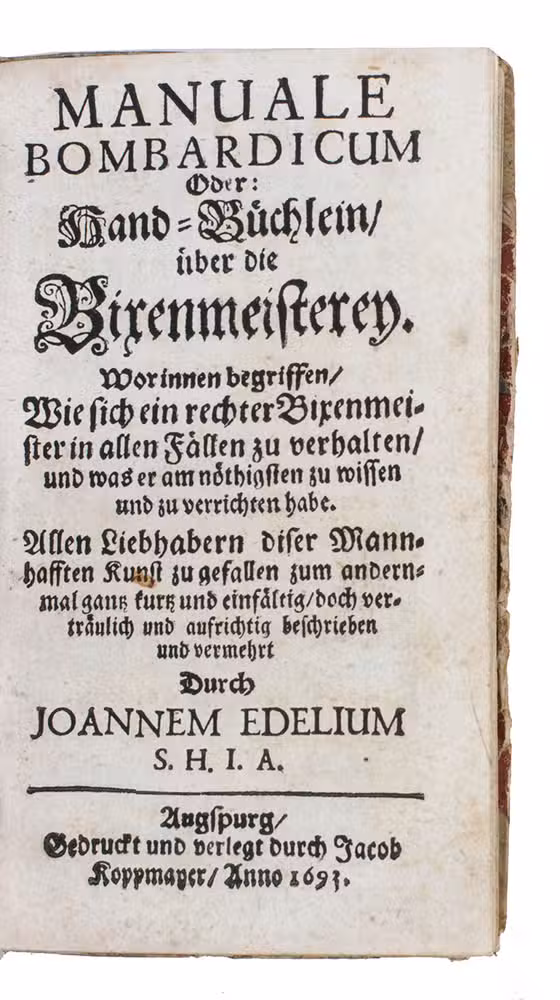 MANUALE
BOMBARDICUM
Oder:
Hand-Büchlein/
über die
Bixenmeisterey.
Worinnen begriffen/
Wie sich ein rechter Bixenmei-
ster in allen Fällen zu verhalten/
und was er am nöthigsten zu wissen
und zu verrichten habe.
Allen Liebhabern diser Mann-
hafften Kunst zu gefallen zum andern-
mal gantz kurtz und einfältig/doch ver-
träulich und aufrichtig beschrieben
und vermehrt
Durch
JOANNEM EDELIUM
S. H. I. A.
Augspurg/
Gedruckt und verlegt durch Jacob
Koppmayer/ Anno 1693.